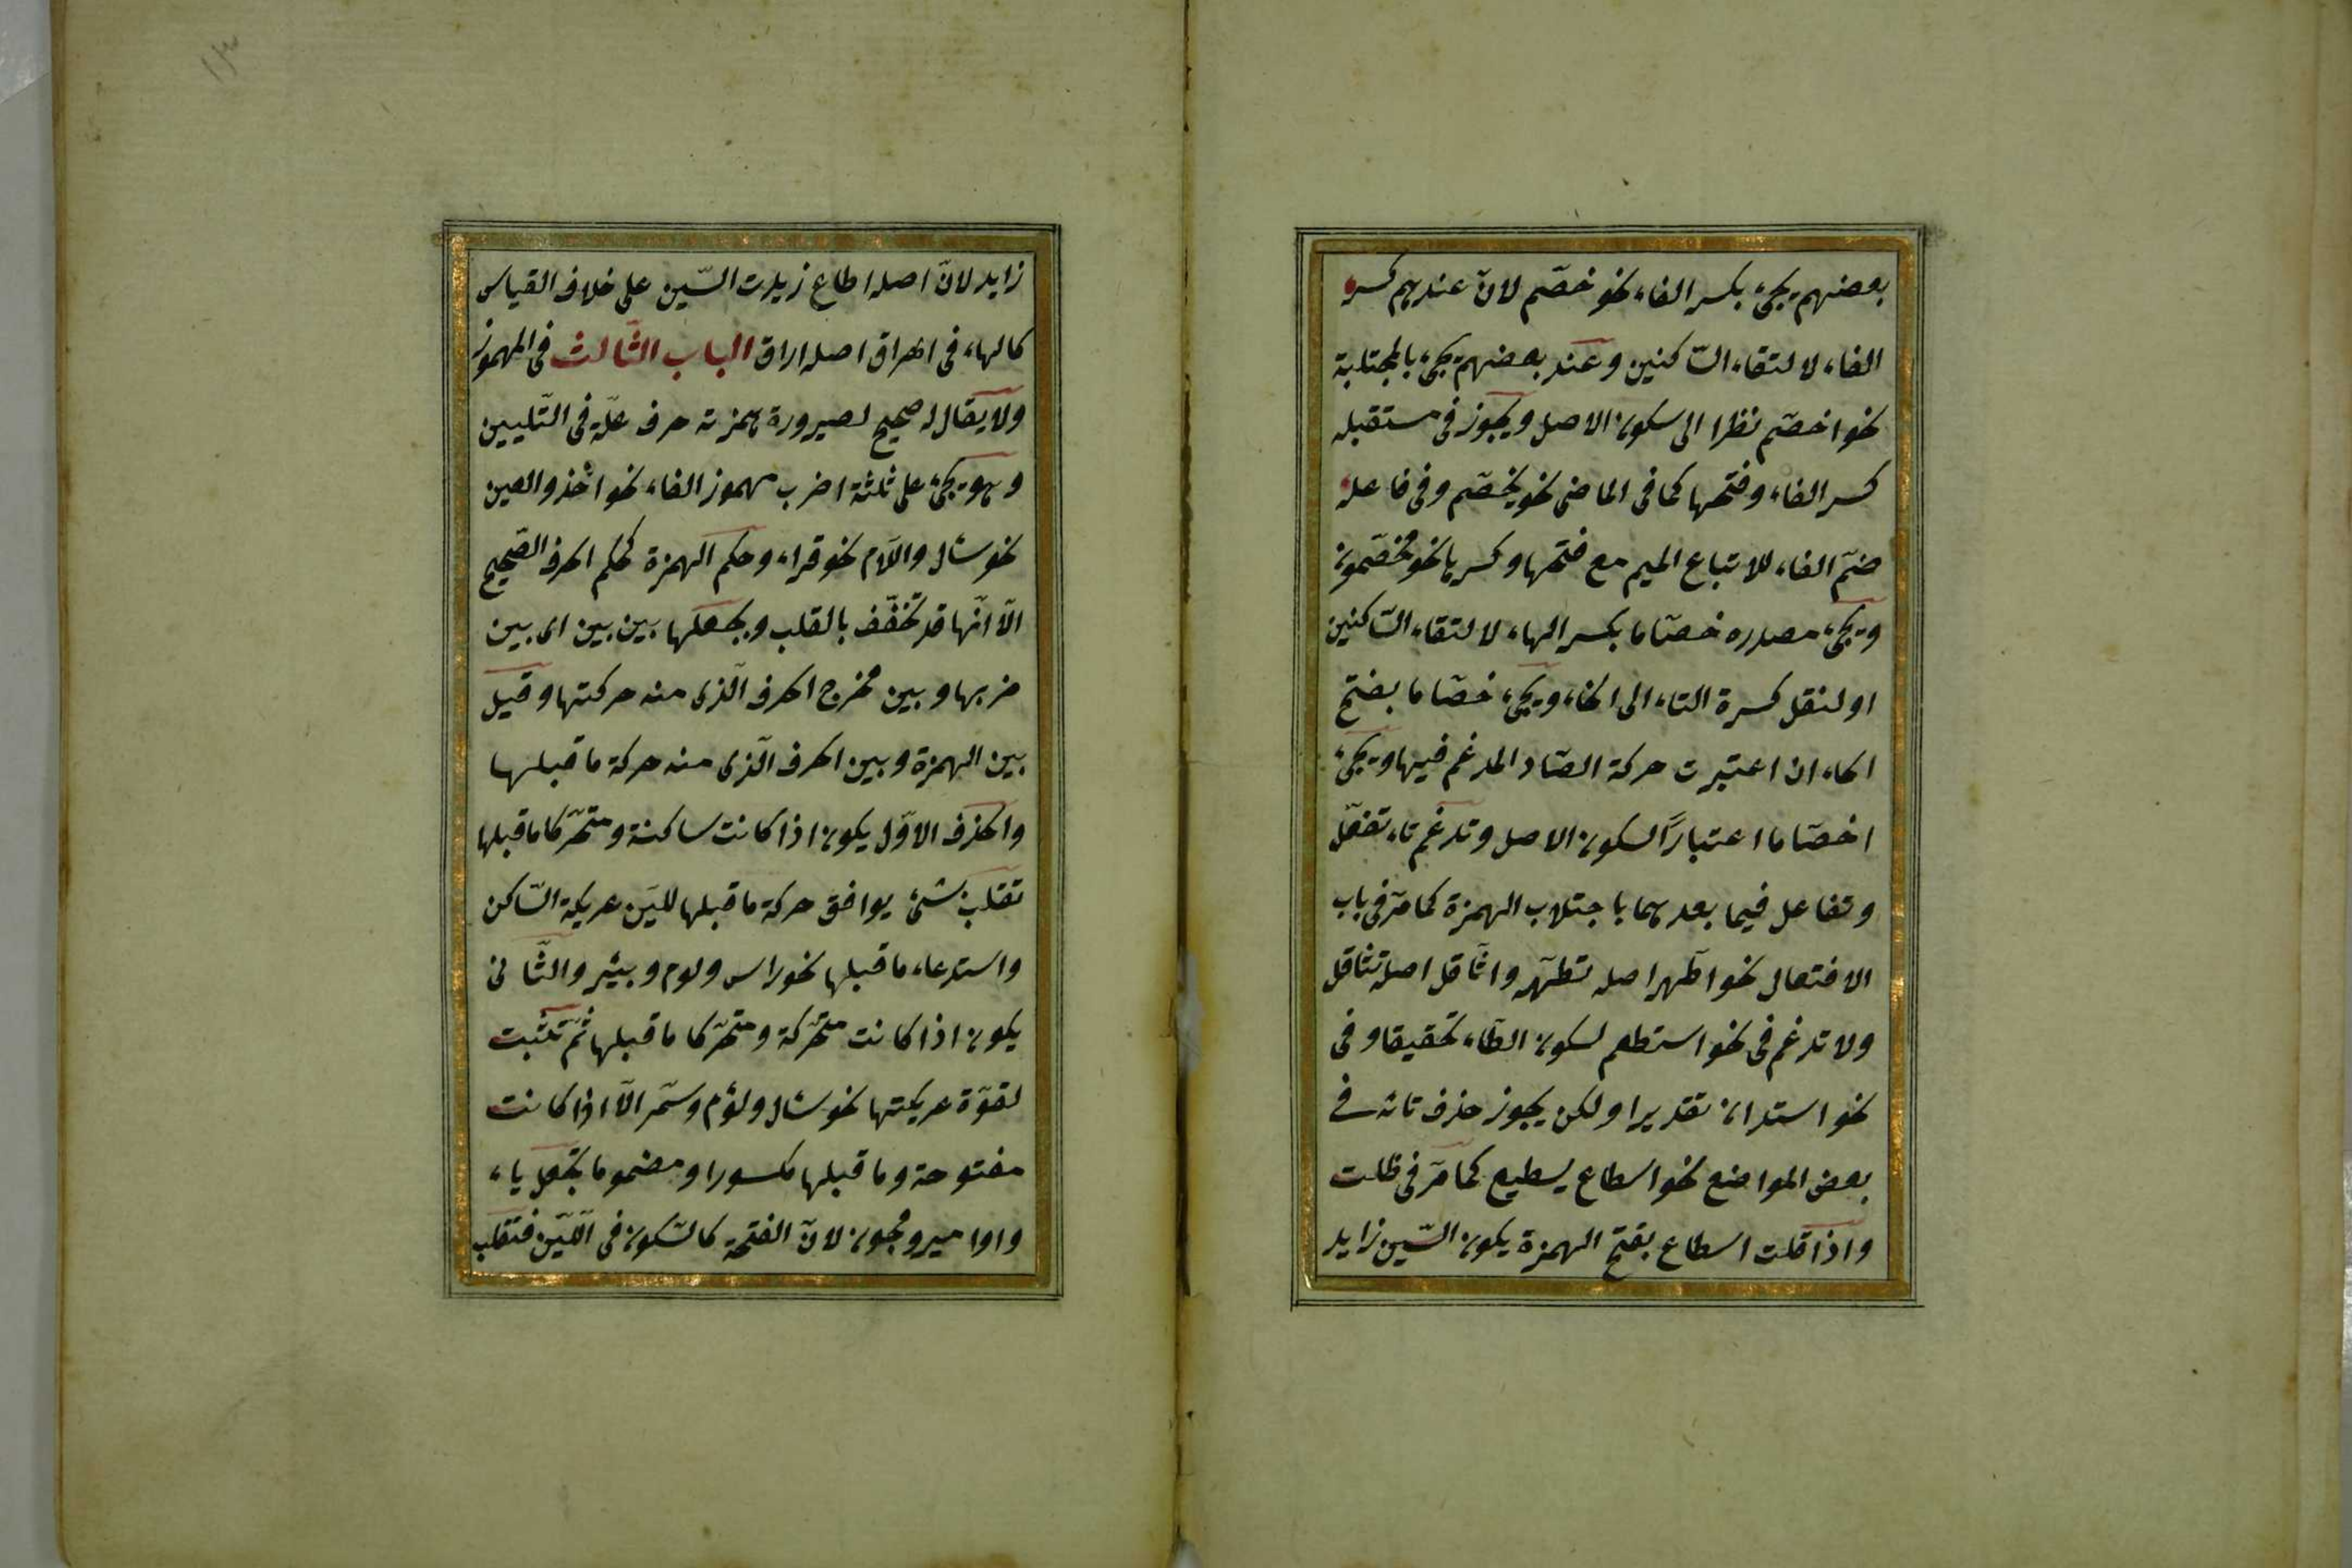 بعضهم يجئ بكسر الفاء نحو خصّم لانّ عندهم كسره
الفاء لالتقاء السّاكنين وعند بعضهم يجئ بالمجتلبة
نحو اخصّم نظرا الى سكون الاصل ويجوز فى مستقبله
كسر الفاء وفتحها كما فى الماضى نحو يخصّم وفى فاعله
ضمّ الفاء للاتباع الميم مع فتحها وكسرها نحو مخصّمون
ويجئ مصدره خصّاما بكسر الهاء لالتقاء السّاكنين
او لنقل كسرة التاء الى الخاء ويجئ خصّاما بفتح
الخاء ان اعتبرت حركة الصّاد المدغم فيها ويجئ
اخصّاما اعتبارًا لسكون الاصل وتدغم تاء تفعّل
وتفاعل فيما بعدهما باجتلاب الهمزة كما مرّ فى باب
الافتعال نحو اطّهر اصله تطهّر واثّاقل اصله تثاقل
ولا تدغم فى نحو استطعم لسكون الطّاء تحقيقا وفى
نحو استدان تقديرا ولكن يجوز حذف تائه فى
بعض المواضع نحو اسطاع يسطيع كما مرّ فى ظلت
واذا قلت اسطاع بفتح الهمزة يكون السّين زايد
زايد لانّ اصله اطاع زيدت السّين على خلاف القياس
كالهاء فى اهراق اصله اراق الباب الثّالث فى المهموز
ولا يقال له صحيح لصيرورة همزته حرف علّة فى التّليين
وهو يجئ على ثلثة اضرب مهموز الفاء نحو اخذ والعين
نحو سأل واللّام نحو قراء وحكم الهمزة كحكم الحرف الصّحيح
الّا انّها قد تخفّف بالقلب وبجعلها بين بين اى بين
مخرجها وبين مخرج الحرف الّذى منه حركتها وقيل
بين الهمزة وبين الحرف الّذى منه حركة ما قبلها
والحذف الاوّل يكون اذا كانت ساكنة ومتحرّكا ما قبلها
تقلب بشئ يوافق حركة ما قبلها لليّن عريكة السّاكن
واستدعاء ما قبلها نحو راس ولوم وبير والثّانى
يكون اذا كانت متحرّكة ومتحرّكا ما قبلها ثمّ تثبت
لقوّة عريكتها نحو سأل ولؤم وسئم الّا اذا كانت
مفتوحة وما قبلها مكسورا او مضموما تجعل ياء
واوا مير وجون لانّ الفتحة كالسّكون فى اللّين فتقلب